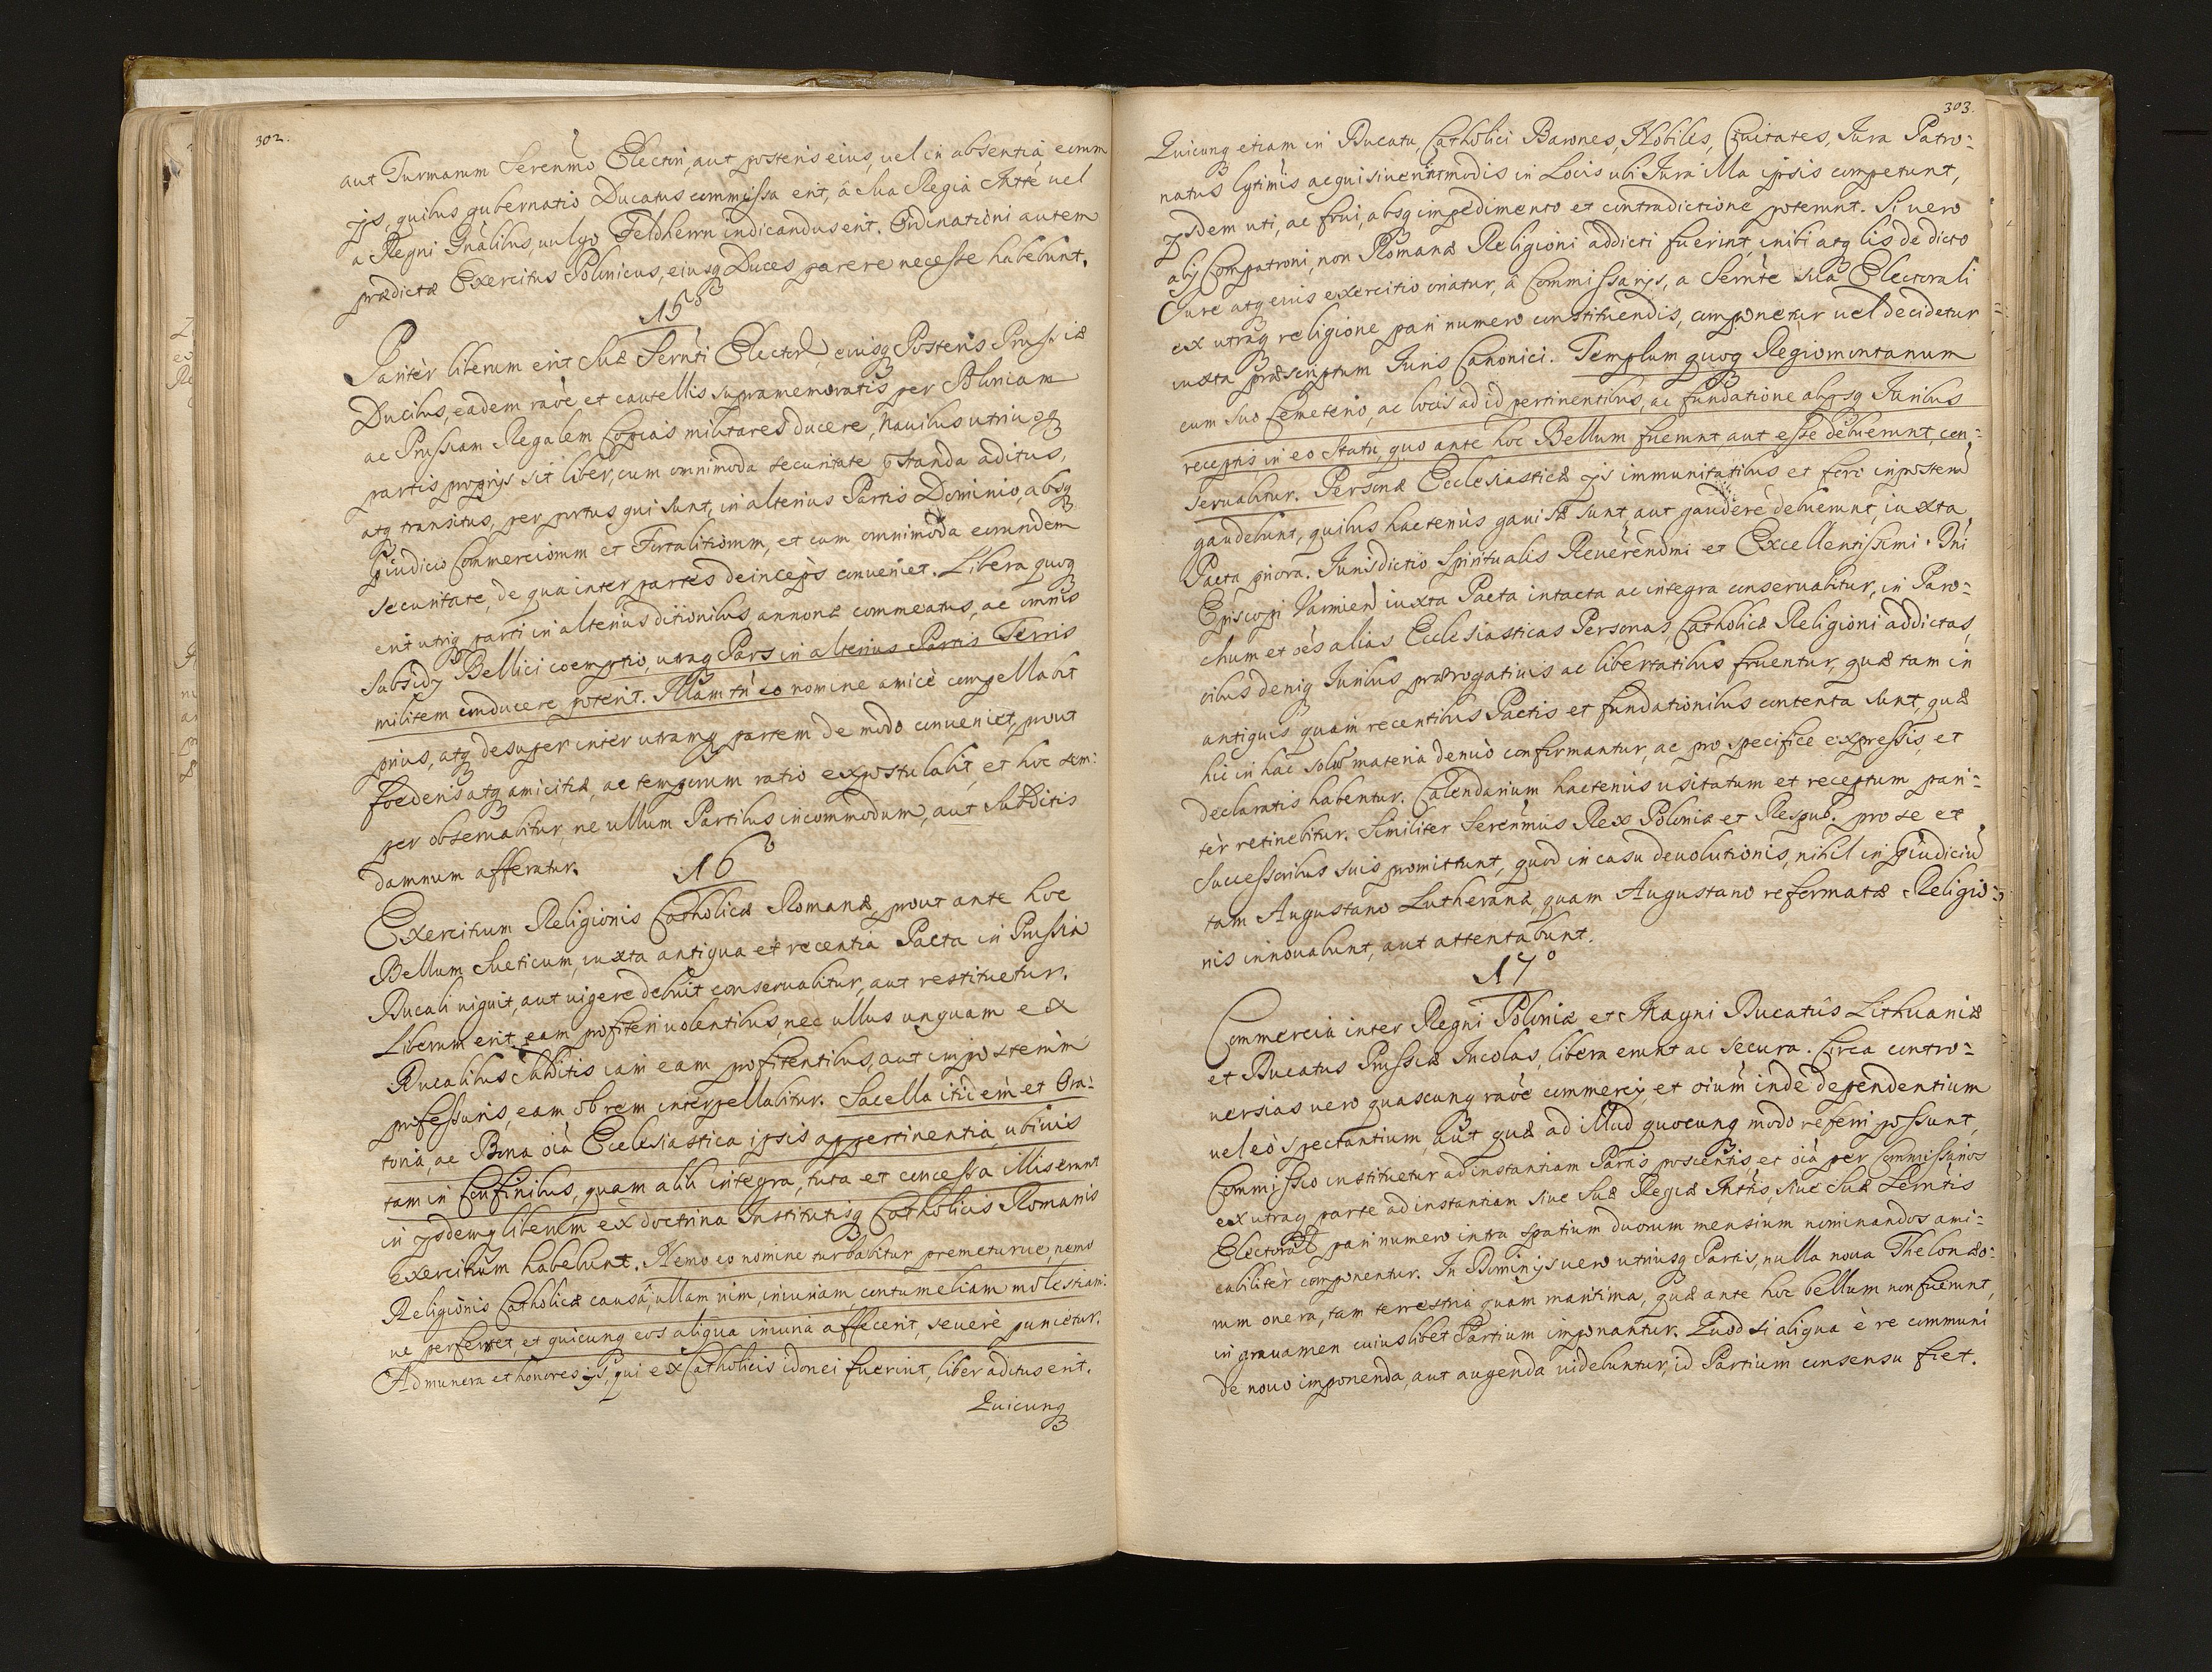 302.
aut Turmarum Serenmo Electori, aut posteris eius, uel in absentia eorum
ijs, quibus gubernatio Ducatus commissa erit, â sua Regia Mtte uel
a Regni Gnalibus, uulgo Feldherrn indicandus erit. Ordinationi autem
prædictæ Exercitus Polonicus, eiusq Duces parere necesse habebunt.
15°
Pariter liberum erit Suæ Sernti Elector, eiusq Posteris Prussiæ
Ducibus, eadem raoe et cautellis supramemoratis per Poloniam
ac Prussiam Regalem Copias militares ducere, Nauibus utriusq
partis proprijs sit liber, cum omnimoda securitate pstanda aditus,
atq transitus, per portus qui sunt, in alterius Partis Dominio, absq
pjudicio Commerciorum et Fortalitiorum, et cum omnimoda eorundem
securitate, de qua inter partes deinceps conueniet. Libera quoq
erit utriq parti in alterius ditionibus, annonæ commeatus, ac omnis
subsidij Bellici coemptio, utraq Pars in alterius Partis Terris
militem conducere poterit. Illam tn eo nomine amicè compellabit
prius, atq desuper inter utramq partem de modo conueniet, prout
foederis atq amicitiæ, ac temporum ratio expostulabit, et hoc sem-
per obseruabitur, ne ullum Partibus incommodum, aut Subditis
damnum afferatur.
16°
Exercitium Religionis Catholicæ Romanæ, prout ante hoc
Bellum Sueticum, iuxta antiqua et recentia Pacta in Prussia
Ducali uiguit, aut uigere debuit conseruabitur, aut restituetur.
Liberum erit eam profiteri uolentibus, nec ullus unquam ex
Ducalibus Subditis iam eam profitentibus, aut imposterum
professuris, eam ob rem interpellabitur. Sacella itidem et Ora-
toria, ac Bona oia Ecclesiastica ipsis appertinentia, ubiuis
tam in Confinibus, quam alibi integra, tuta et concessa illis erunt
in ijsdemq liberum ex doctrina Institutisq Catholicis Romanis
exercitium habebunt. Nemo eo nomine turbabitur premeturue, nemo
Religionis Catholicæ causâ, ullam uim, iniuriam, contumeliam molestiam-
ue perferret, et quicunq eos aliqua iniuria affecerit, seuerè punietur.
Ad munera et honores ijs, qui ex Catholicis idonei fuerint, liber aditus erit.
Quicunq
303.
Quicunq etiam in Ducatu, Catholici Barones, Nobiles, Ciuitates, Iura Patro-
natus lgtimis acquisiuerint modis in Locis ubi Iura illa ipsis competunt,
ijsdem uti, ac frui, absq impedimento et contradictione poterunt. Si uero
alij Compatroni, non Romanæ Religioni addicti fuerint, inibi atq lis de dicto
Iure atq eius exercitio oriatur, â Commissarijs, a Sernte sua Electorali
ex utraq religione pari numero constituendis, componetur uel decidetur
iuxta præscriptum Iuris Canonici. Templum quoq Regiomontanum
cum suo Cemeterio, ac locis ad id pertinentibus, ac fundatione alijsq Iuribus
receptis, in eo statu, quo ante hoc Bellum fuerunt, aut esse debuerunt, con-
seruabitur. Personæ Ecclesiasticæ ijs immunitatibus et foro inposterum
gaudebunt, quibus hactenus gauisæ sunt aut gaudere debuerunt, iuxta
Pacta priora. Iurisdictio Spiritualis Reuerendmi et Excellentissimi Dni
Episcopi Varmien iuxta Pacta intacta ac integra conseruabitur, in Paro-
chum et oes alias Ecclesiasticas Personas, Catholicæ Religioni addictas,
oibus deniq Iuribus prærogatiuis ac libertatibus fruentur, quæ tam in
antiquis quam recentibus Pactis et fundationibus contenta sunt, quæ
hic in hac materia denuò confirmantur, ac pro specifice expressis, et
declaratis habentur. Calendarium hactenus usitatum et receptum pari-
tèr retinebitur. Similiter Serenmus Rex Poloniæ et Respub. pro se et
Successoribus suis promittunt, quod in casu deuolutionis, nihil in pjudiciu
tam Augustano Lutheranæ, quam Augustano reformatæ Religio-
nis innouabunt, aut attentabunt.
17°
Commercia inter Regni Poloniæ et Magni Ducatûs Lithuaniæ
et Ducatus Prussiæ Incolas, libera erunt ac secura. Circa contro-
uersias uero quascunq raoe commercij et oium inde dependentium
uel eo spectantium, aut quæ ad illud quocunq modo referri possunt,
Commissio instituetur ad instantiam Partis poscentis, et oia per Commissarios
ex utraq parte ad instantiam siue Suæ Regiæ Mttis, siue Suæ Serntis
Electoral pari numero intra spatium duorum mensium nominandos ami-
cabilitèr componentur. In Dominijs uero utriusq Partis, nulla noua Thelonæo-
rum onera, tam terrestria quam maritima, quæ ante hoc bellum non fuerunt,
in grauamen cuiuslibet Partium imponantur. Quod si aliqua è re communi
de nouo imponenda, aut augenda uidebuntur, id Partium consensu fiet.